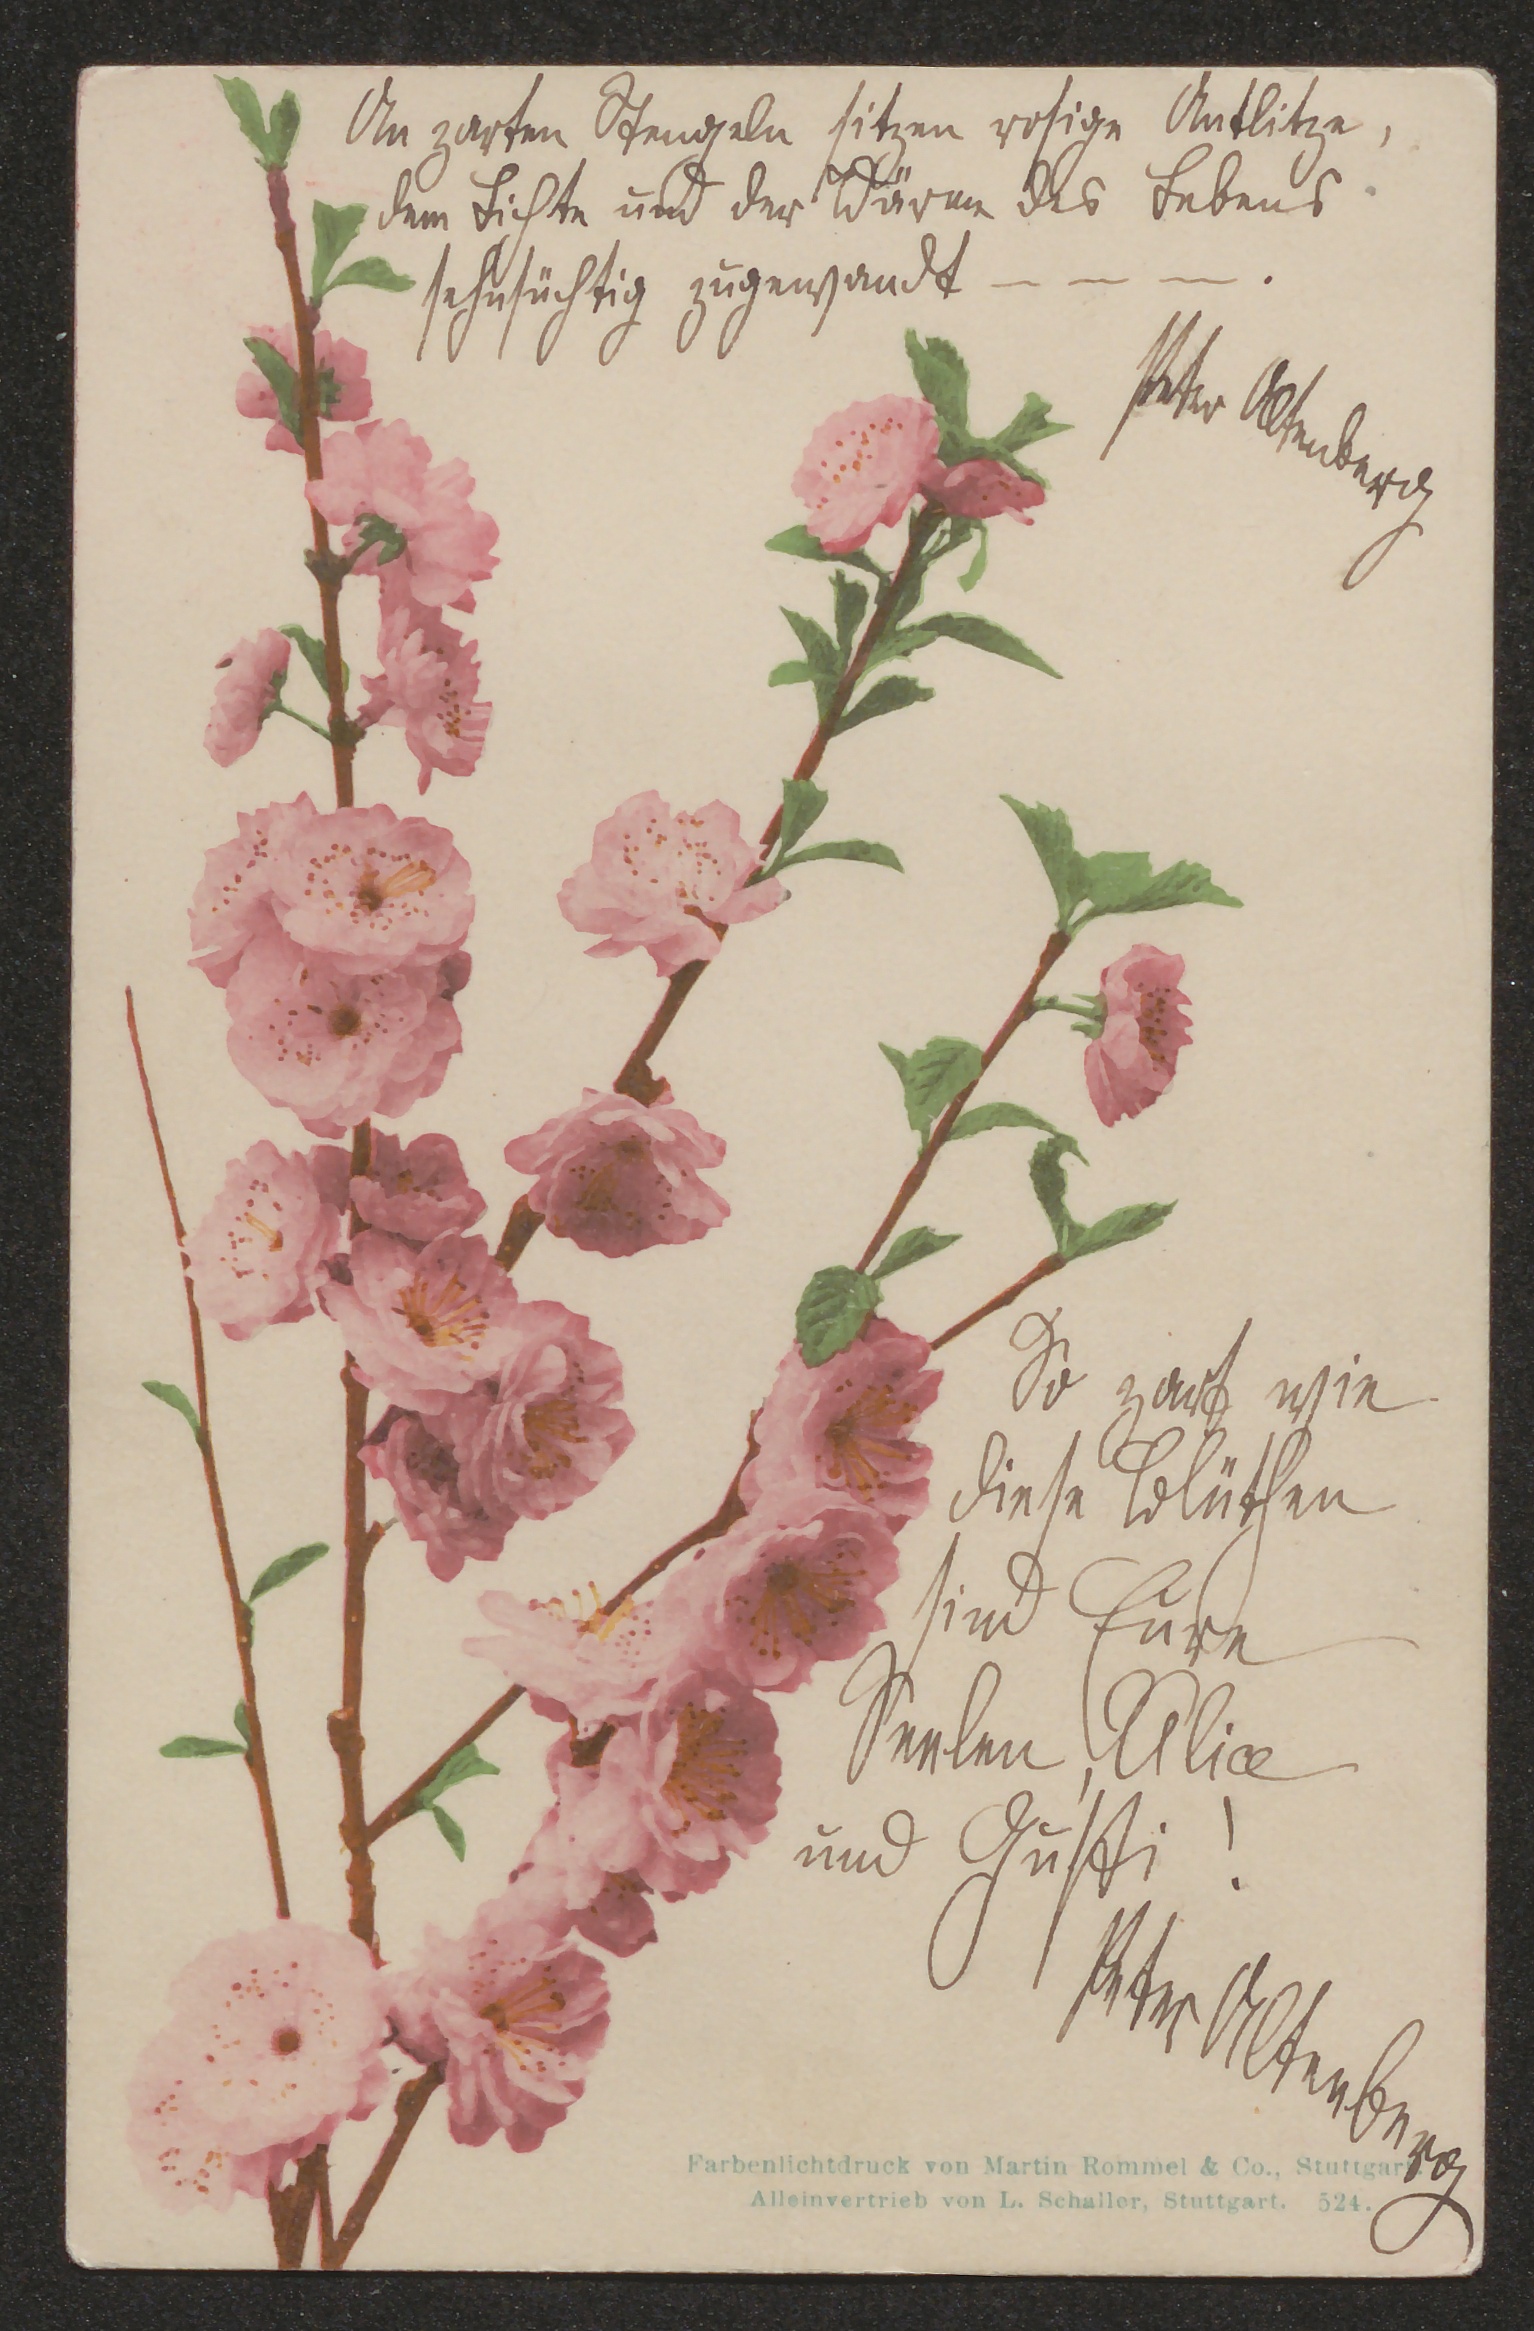 An zarten Stengeln sitzen rosige Antlitze,
dem Lichte und der Wärme des Lebens
sehnsüchtig zugewandt – – – –.
Peter Altenberg
So zart wie
diese Blüthen
sind Eure
Seelen, Alice
und Gusti!
Peter Altenberg
Farbenlichtdruck von Martin Rommel & Co., Stuttgart.
Alleinvertrieb von L. Schaller, Stuttgart. 524.